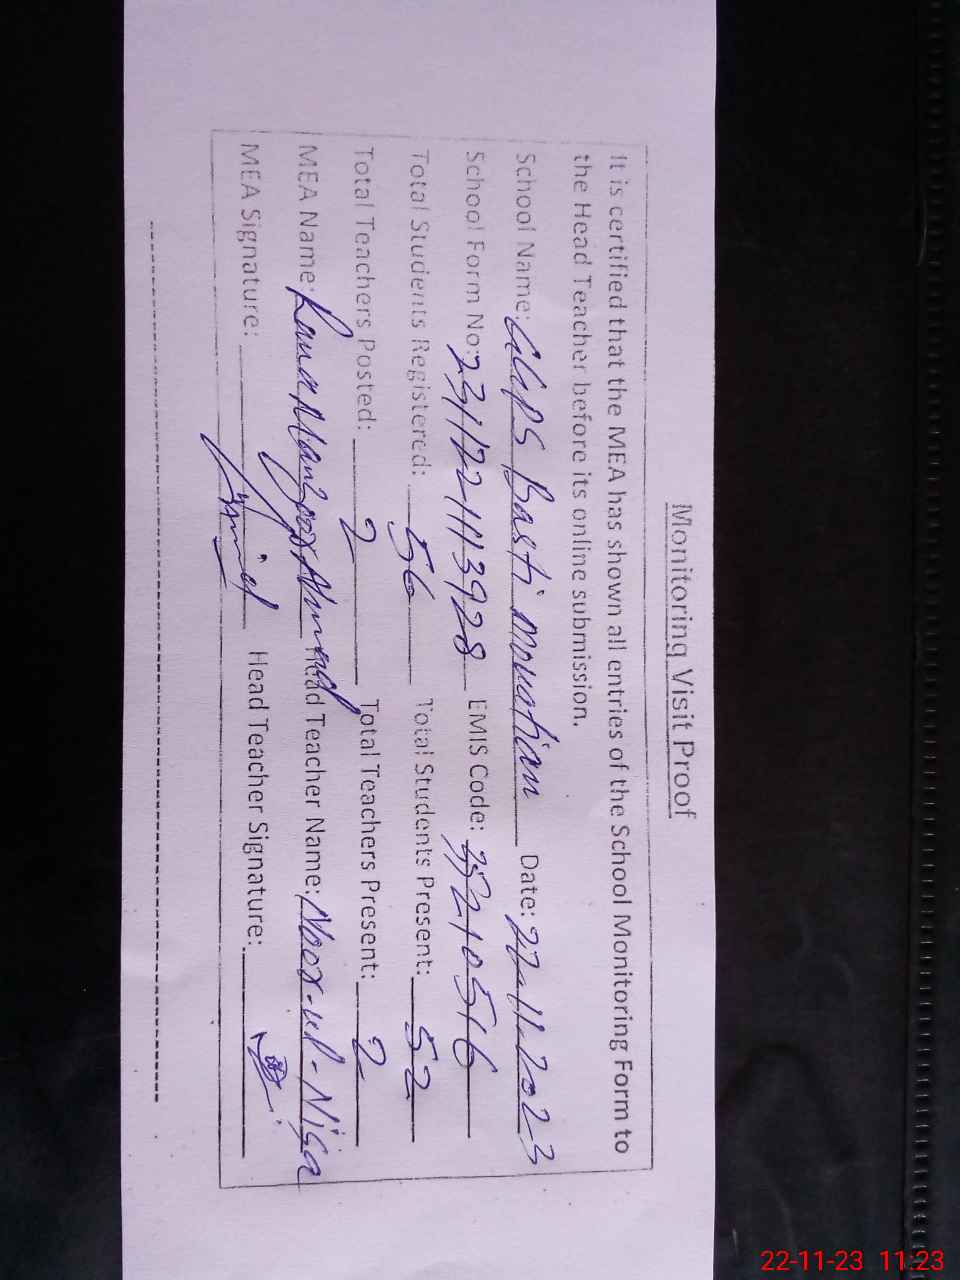 Monitoring Visit Proof
It is certified that the MEA has shown all entries of the School Monitoring Form to
the Head Teacher before its online submission.
School Name: GGPS Basti Movatian Date: 22-11-2023
School Form No: 231122-1113928 EMIS Code: 35210516
Total Students Registered: 56 Total Students Present: 52
Total Teachers Posted: 2 Total Teachers Present: 2
MEA Name: Rana Manzoor Ahmad Head Teacher Name: Noor-ul-Nisa
MEA Signature: Head Teacher Signature:
22-11-23 11:23